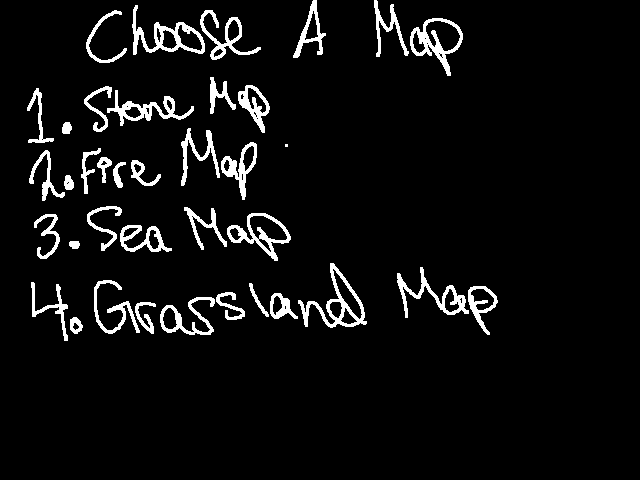 Choose A Map
1. Stone Map
2. Fire Map
3. Sea Map
4. Grassland Map